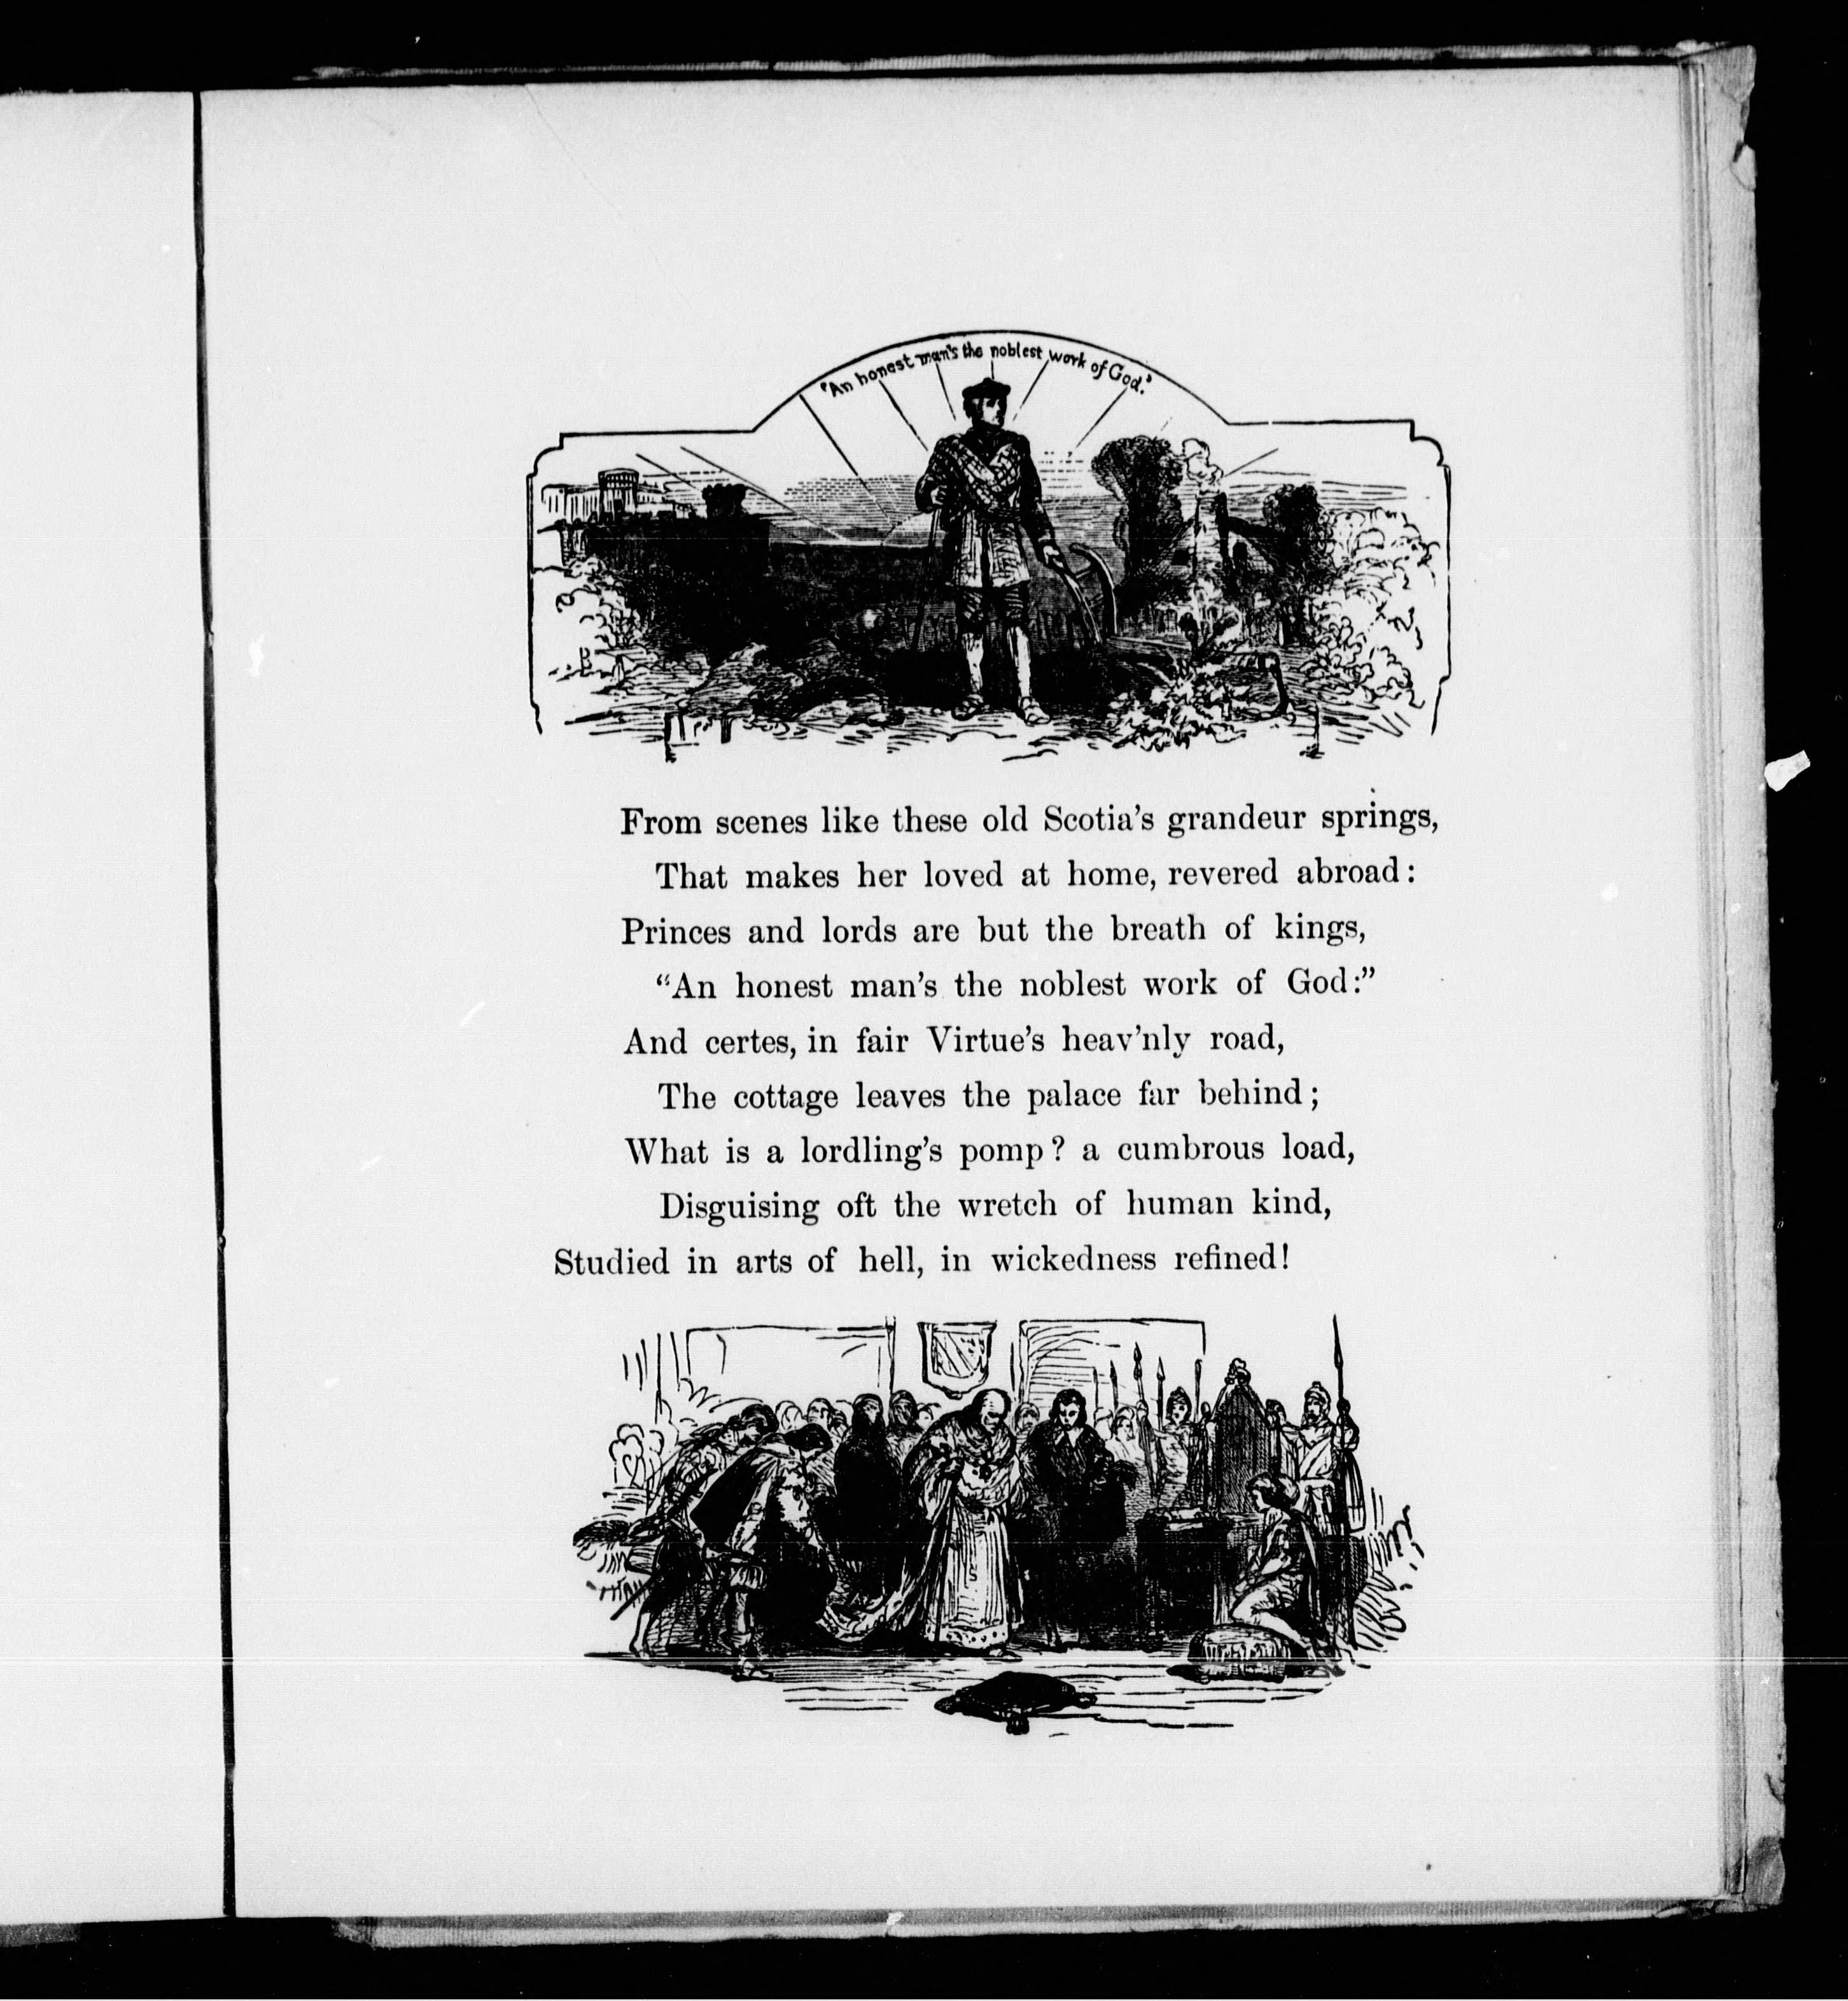 "An honest man's the noblest work of God."
From scenes like these old Scotia's grandeur springs,
That makes her loved at home, revered abroad:
Princes and lords are but the breath of kings,
"An honest man's the noblest work of God:"
And certes, in fair Virtue's heav'nly road,
The cottage leaves the palace far behind;
What is a lordling's pomp? a cumbrous load,
Disguising oft the wretch of human kind,
Studied in arts of hell, in wickedness refined!